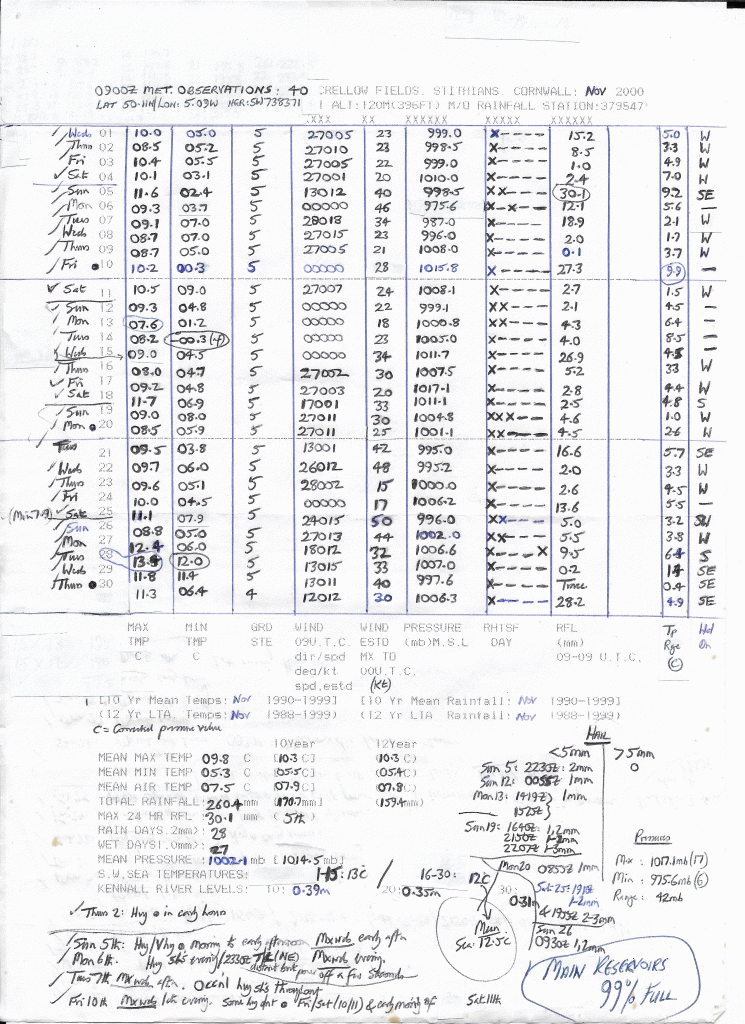 0900Z MET. OBSERVATIONS: 40 CRELLOW FIELDS, STITHIANS, CORNWALL: Nov 2000
LAT 50.11N/LON: 5.09W NGR:SW738371 ALT:120M(396FT) M/O RAINFALL STATION:379547
XXXX XX XXXXXX XXXXX XXXXXX
Weds 01 10.0 05.0 5 27005 23 999.0 X---- 15.2 5.0 W
Thurs 02 08.5 05.2 5 27010 23 998.5 X---- 8.5 3.3 W
Fri 03 10.4 05.5 5 27005 22 999.0 X---- 1.0 4.9 W
Sat 04 10.1 03.1 5 27001 20 1010.0 X---- 2.4 7.0 W
Sun 05 11.6 02.4 5 13012 40 998.5 XX--- 30.1 9.2 SE
Mon 06 09.3 03.7 5 00000 46 975.6 X-X-- 12.1 5.6 —
Tues 07 09.1 07.0 5 28018 34 987.0 X---- 18.9 2.1 W
Weds 08 08.7 07.0 5 27015 23 996.0 X---- 2.0 1.7 W
Thurs 09 08.7 05.0 5 27005 21 1008.0 X---- 0.1 3.7 W
Fri 10 10.2 00.3 5 00000 28 1015.8 X---- 27.3 9.9 —
Sat 11 10.5 09.0 5 27007 24 1008.1 X---- 2.7 1.5 W
Sun 12 09.3 04.8 5 00000 22 999.1 XX--- 2.1 4.5 —
Mon 13 07.6 01.2 5 00000 18 1000.8 X---- 4.3 6.4 —
Tues 14 08.2 -00.3 5 00000 23 1005.0 X---- 4.0 8.5 —
Weds 15 09.0 04.5 5 00000 34 1011.7 X---- 26.9 4.5 —
Thurs 16 08.0 04.7 5 27002 30 1007.5 X---- 5.2 33 W
Fri 17 09.2 04.8 5 27003 20 1017.1 X---- 2.8 4.4 W
Sat 18 11.7 06.9 5 17001 33 1011.1 X---- 2.5 4.8 S
Sun 19 09.0 08.0 5 27011 30 1004.8 XXX-- 4.6 1.0 W
Mon 20 08.5 05.9 5 27011 25 1001.1 XX--- 4.5 2.6 W
Tues 21 09.5 03.8 5 13001 42 995.0 X---- 16.6 5.7 SE
Weds 22 09.7 06.0 5 26012 48 995.2 X---- 2.0 3.3 W
Thurs 23 09.6 05.1 5 28002 15 1000.0 X---- 2.6 4.5 W
Fri 24 10.0 04.5 5 00000 17 1006.2 X---- 13.6 5.5 —
(Min 7.9) Sat 25 11.1 07.9 5 24015 50 996.0 XX--- 5.0 3.2 SW
Sun 26 08.8 05.0 5 27013 44 1002.0 XX--- 5.5 3.8 W
Mon 27 12.4 06.0 5 18012 32 1006.6 X---X 9.5 6.4 S
Tues 28 13.4 12.0 5 13015 33 1007.0 X---- 0.2 1.4 SE
Weds 29 11.8 11.4 5 13011 40 997.6 X---- Trace 0.4 SE
Thurs 30 11.3 06.4 4 12012 30 1006.3 X---- 28.2 4.9 SE
MAX MIN GRD WIND WIND PRESSURE RHTSF RFL Tp Wd
TMP TMP STE 09U.T.C. ESTD (mb)M.S.L DAY (mm) Rge Dn
C C dir/spd MX TO 09-09 U.T.C. (C)
deg/kt 00U.T.C.
spd.estd (kt)
[10 Yr Mean Temps: Nov 1990-1999] [10 Yr Mean Rainfall: Nov 1990-1999]
(12 Yr LTA. Temps: Nov 1988-1999) (12 Yr LTA Rainfall: Nov 1988-1999)
C = Corrected pressure value
10Year 12Year
MEAN MAX TEMP 09.8 C [10.3 C] (10.3 C)
MEAN MIN TEMP 05.3 C [05.5 C] (05.4 C)
MEAN AIR TEMP 07.5 C [07.9 C] (07.8 C)
TOTAL RAINFALL: 260.4 mm [170.7mm] (159.4mm)
MAX 24 HR RFL : 30.1 mm (5th)
RAIN DAYS.2mm): 28
WET DAYS1.0mm): 27
MEAN PRESSURE : 1002.1 mb [1014.5mb]
S.W.SEA TEMPERATURES: 1-15: 13C / 16-30: 12C
KENNALL RIVER LEVELS: 10: 0.39m 20: 0.35m 30: 0.31m
Mean Sea: 12.5C
HAIL
<5mm >5mm
0
Sun 5: 2230Z: 2mm
Sun 12: 0055Z 1mm
Mon 13: 1419Z) 1mm
1525Z)
Sun 19: 1640Z: 1,2mm
2150Z 1-2mm
2207Z 1-3mm
Mon 20 0855Z 1mm
Sat 25: 1910Z 1-2mm
& 1955Z 2-3mm
Sun 26
0930Z 1,2mm
Pressures
Max : 1017.1mb (17)
Min : 975.6mb (6)
Range : 42mb
Thurs 2: Hvy in early hours
Sun 5th: Hvy/Vhy morning to early afternoon Mx wds early aftn
Mon 6th. Hvy sh's evening/2330Z (NE) Mx wds evening.
distant power off a few seconds
Tues 7th Mx wds aftn. Occ'nl hvy sh's throughout
Fri 10th Mx wds late evening. Some hvy Fri/Sat (10/11) & early morning of Sat 11th
MAIN RESERVOIRS
99% FULL